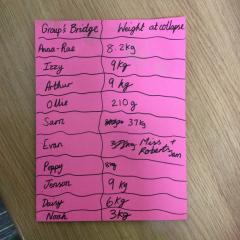 Group's Bridge Weight at collapse
Anna-Rae 8.2kg
Izzy 9kg
Arthur 9kg
Ollie 210g
Sam 37kg
Evan Miss Roberts + Sam
Poppy 8kg
Jenson 9kg
Daisy 6kg
Noah 3kg